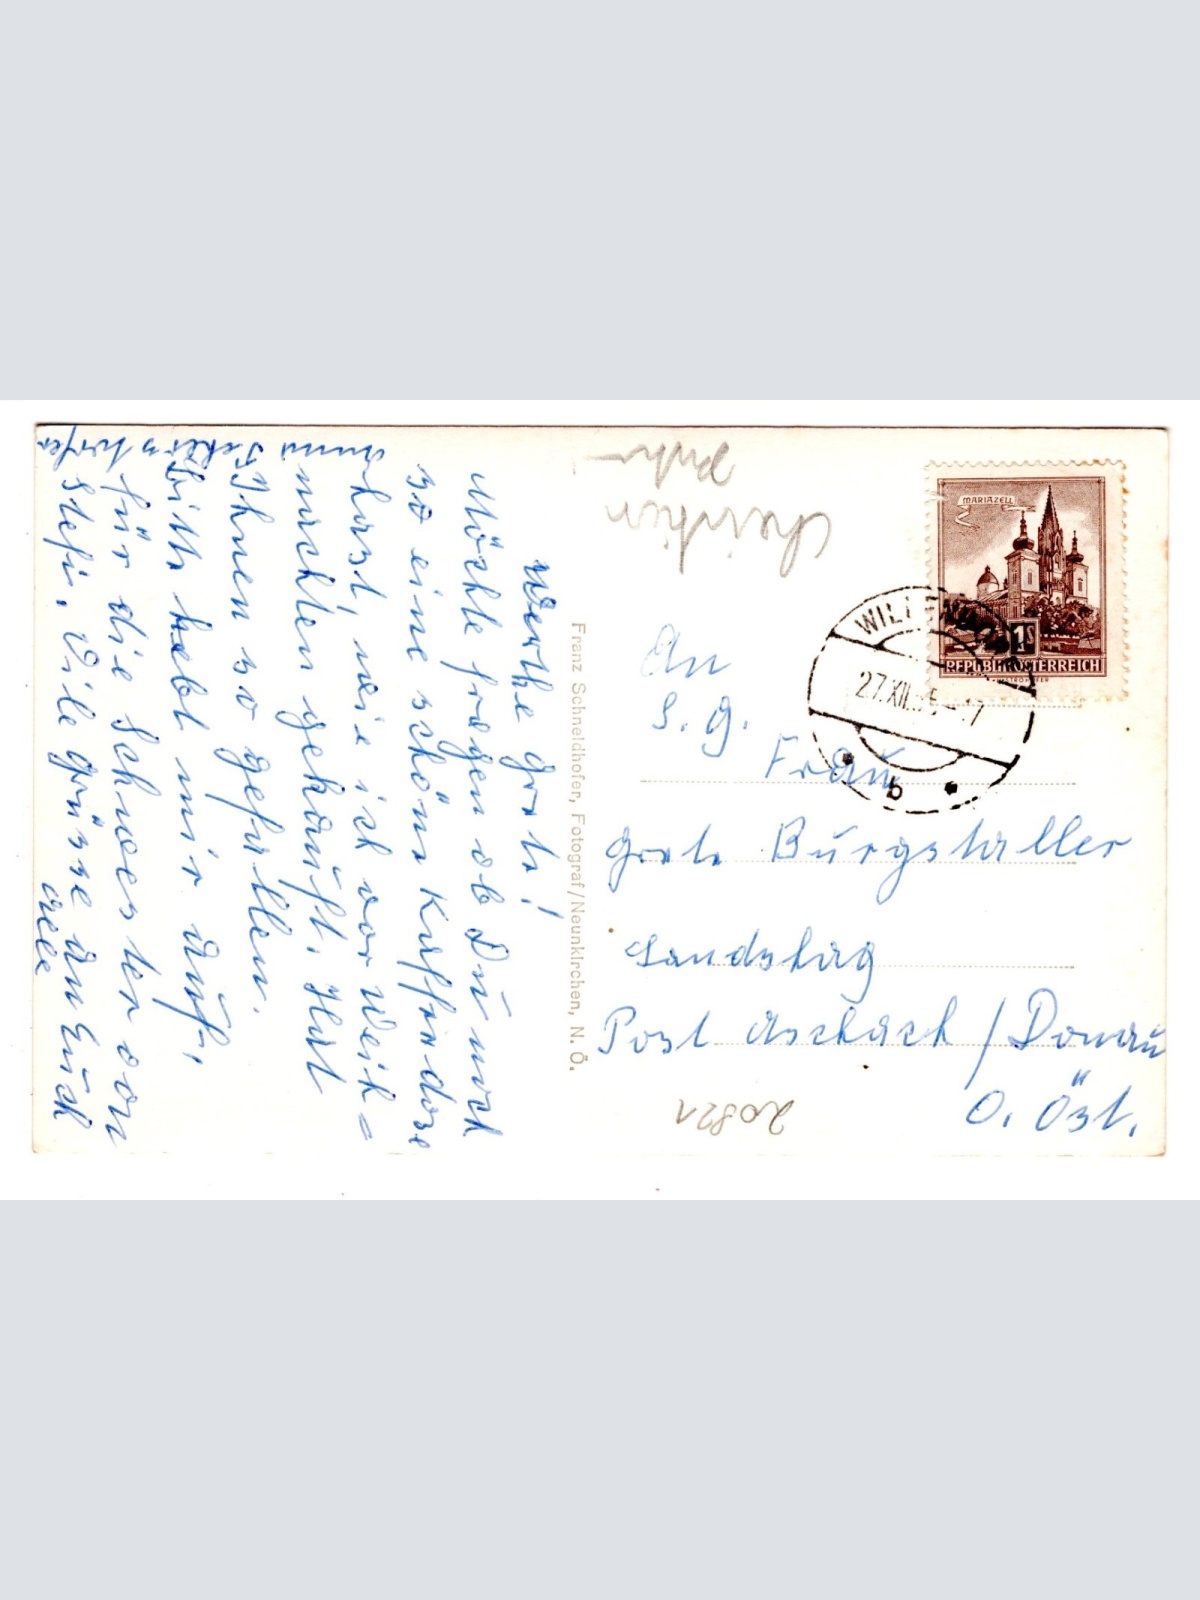 Werthe Grete!
Möchte fregen ob Du noch
so eine schöne Kaffeedose
hast, wie ich vor Weih=
nachten gekauft. Hat
Ihnen so gefallen.
Bitte hebt mir auf,
für die Schwester von
Stefi. Vile grüsse an Euch
alle
Anna
Franz Schneidhofer, Fotograf/Neunkirchen, N. Ö.
MARIAZELL
1S
REPUBLIK ÖSTERREICH
27.XII.
b
An
S. G.
Frau
Grete Burgstaller
Landshag
Post Aschach / Donau
O. Öst.
20821